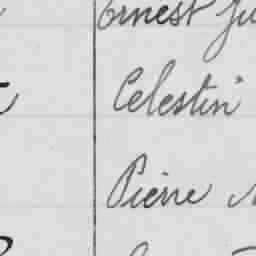 Ernest Ju
Celestin
Pierre